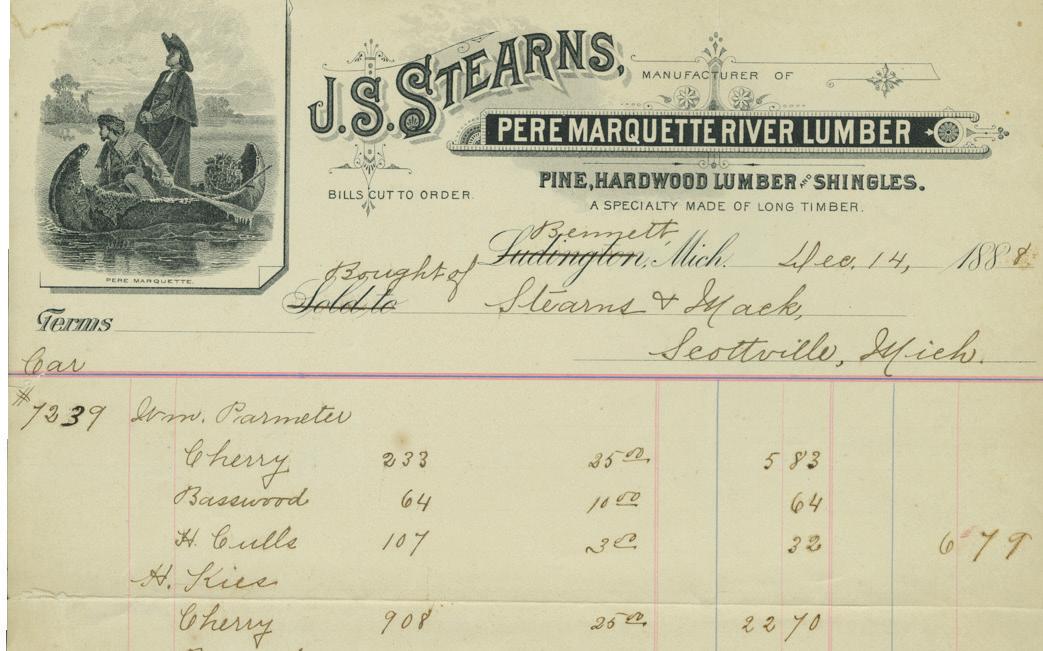 J.S. STEARNS,
MANUFACTURER OF
PERE MARQUETTE RIVER LUMBER
PINE, HARDWOOD LUMBER AND SHINGLES.
BILLS CUT TO ORDER.
A SPECIALTY MADE OF LONG TIMBER.
PERE MARQUETTE.
Bennett,
Ludington, Mich. Dec. 14, 1888
Bought of
Sold to Stearns & Mack,
Terms
Scottville, Mich.
Car
# 7239 Wm. Parmeter
Cherry 233 25 00 5 83
Basswood 64 10 00 64
H. Culls 107 3 00 32 6 79
H. Kies
Cherry 908 25 00 22 70